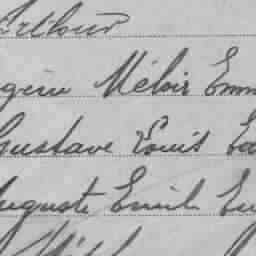 Arthur
Méloir Emm
Gustave Louis Ed
Auguste Emile Eug